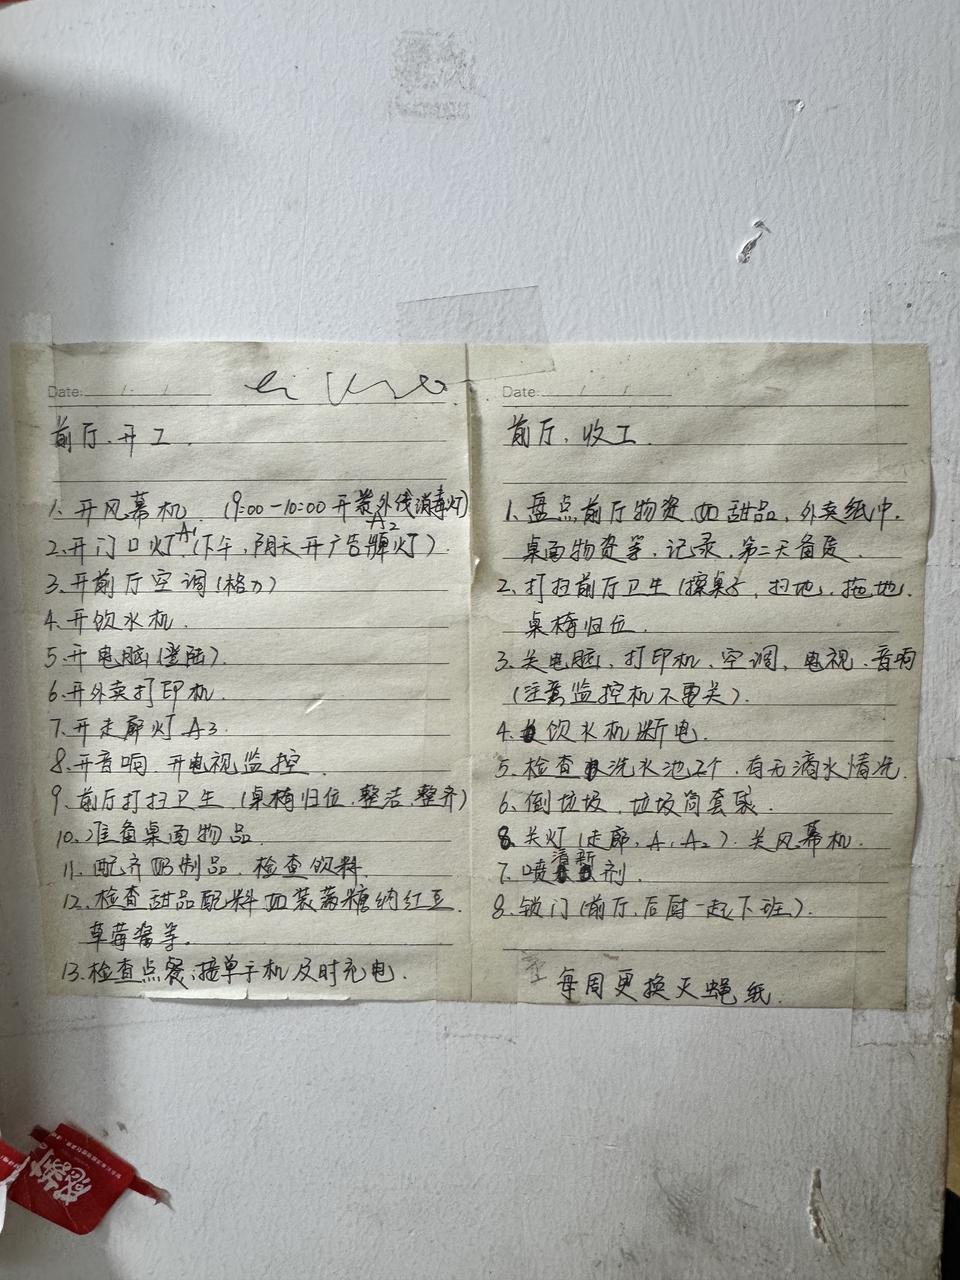 Date: / /
前厅、开工.
1. 开风幕机. (9:00-10:00开紫外线消毒灯)
2. 开门口灯A1 (下午, 阴天开广告牌灯A2).
3. 开前厅空调(格力)
4. 开饮水机.
5. 开电脑(登陆).
6. 开外卖打印机.
7. 开走廊灯A3.
8. 开音响. 开电视监控.
9. 前厅打扫卫生 (桌椅归位, 整洁, 整齐)
10. 准备桌面物品.
11. 配齐奶制品. 检查饮料.
12. 检查甜品配料如装蔗糖纳红豆.
草莓酱等.
13. 检查点餐、接单手机及时充电.
Date: / /
前厅、收工.
1. 盘点前厅物资如甜品, 外卖纸巾.
桌面物资等. 记录. 第二天备货.
2. 打扫前厅卫生 (擦桌子, 扫地, 拖地.
桌椅归位.
3. 关电脑, 打印机、空调、电视、音响
(注意监控机不要关).
4. 饮水机断电.
5. 检查洗水池2个. 有无滴水情况.
6. 倒垃圾. 垃圾筒套袋.
8. 关灯 (走廊, A1 A2). 关风幕机.
7. 喷清新剂.
8. 锁门 (前厅, 后厨一起下班).
每周更换灭蝇纸.